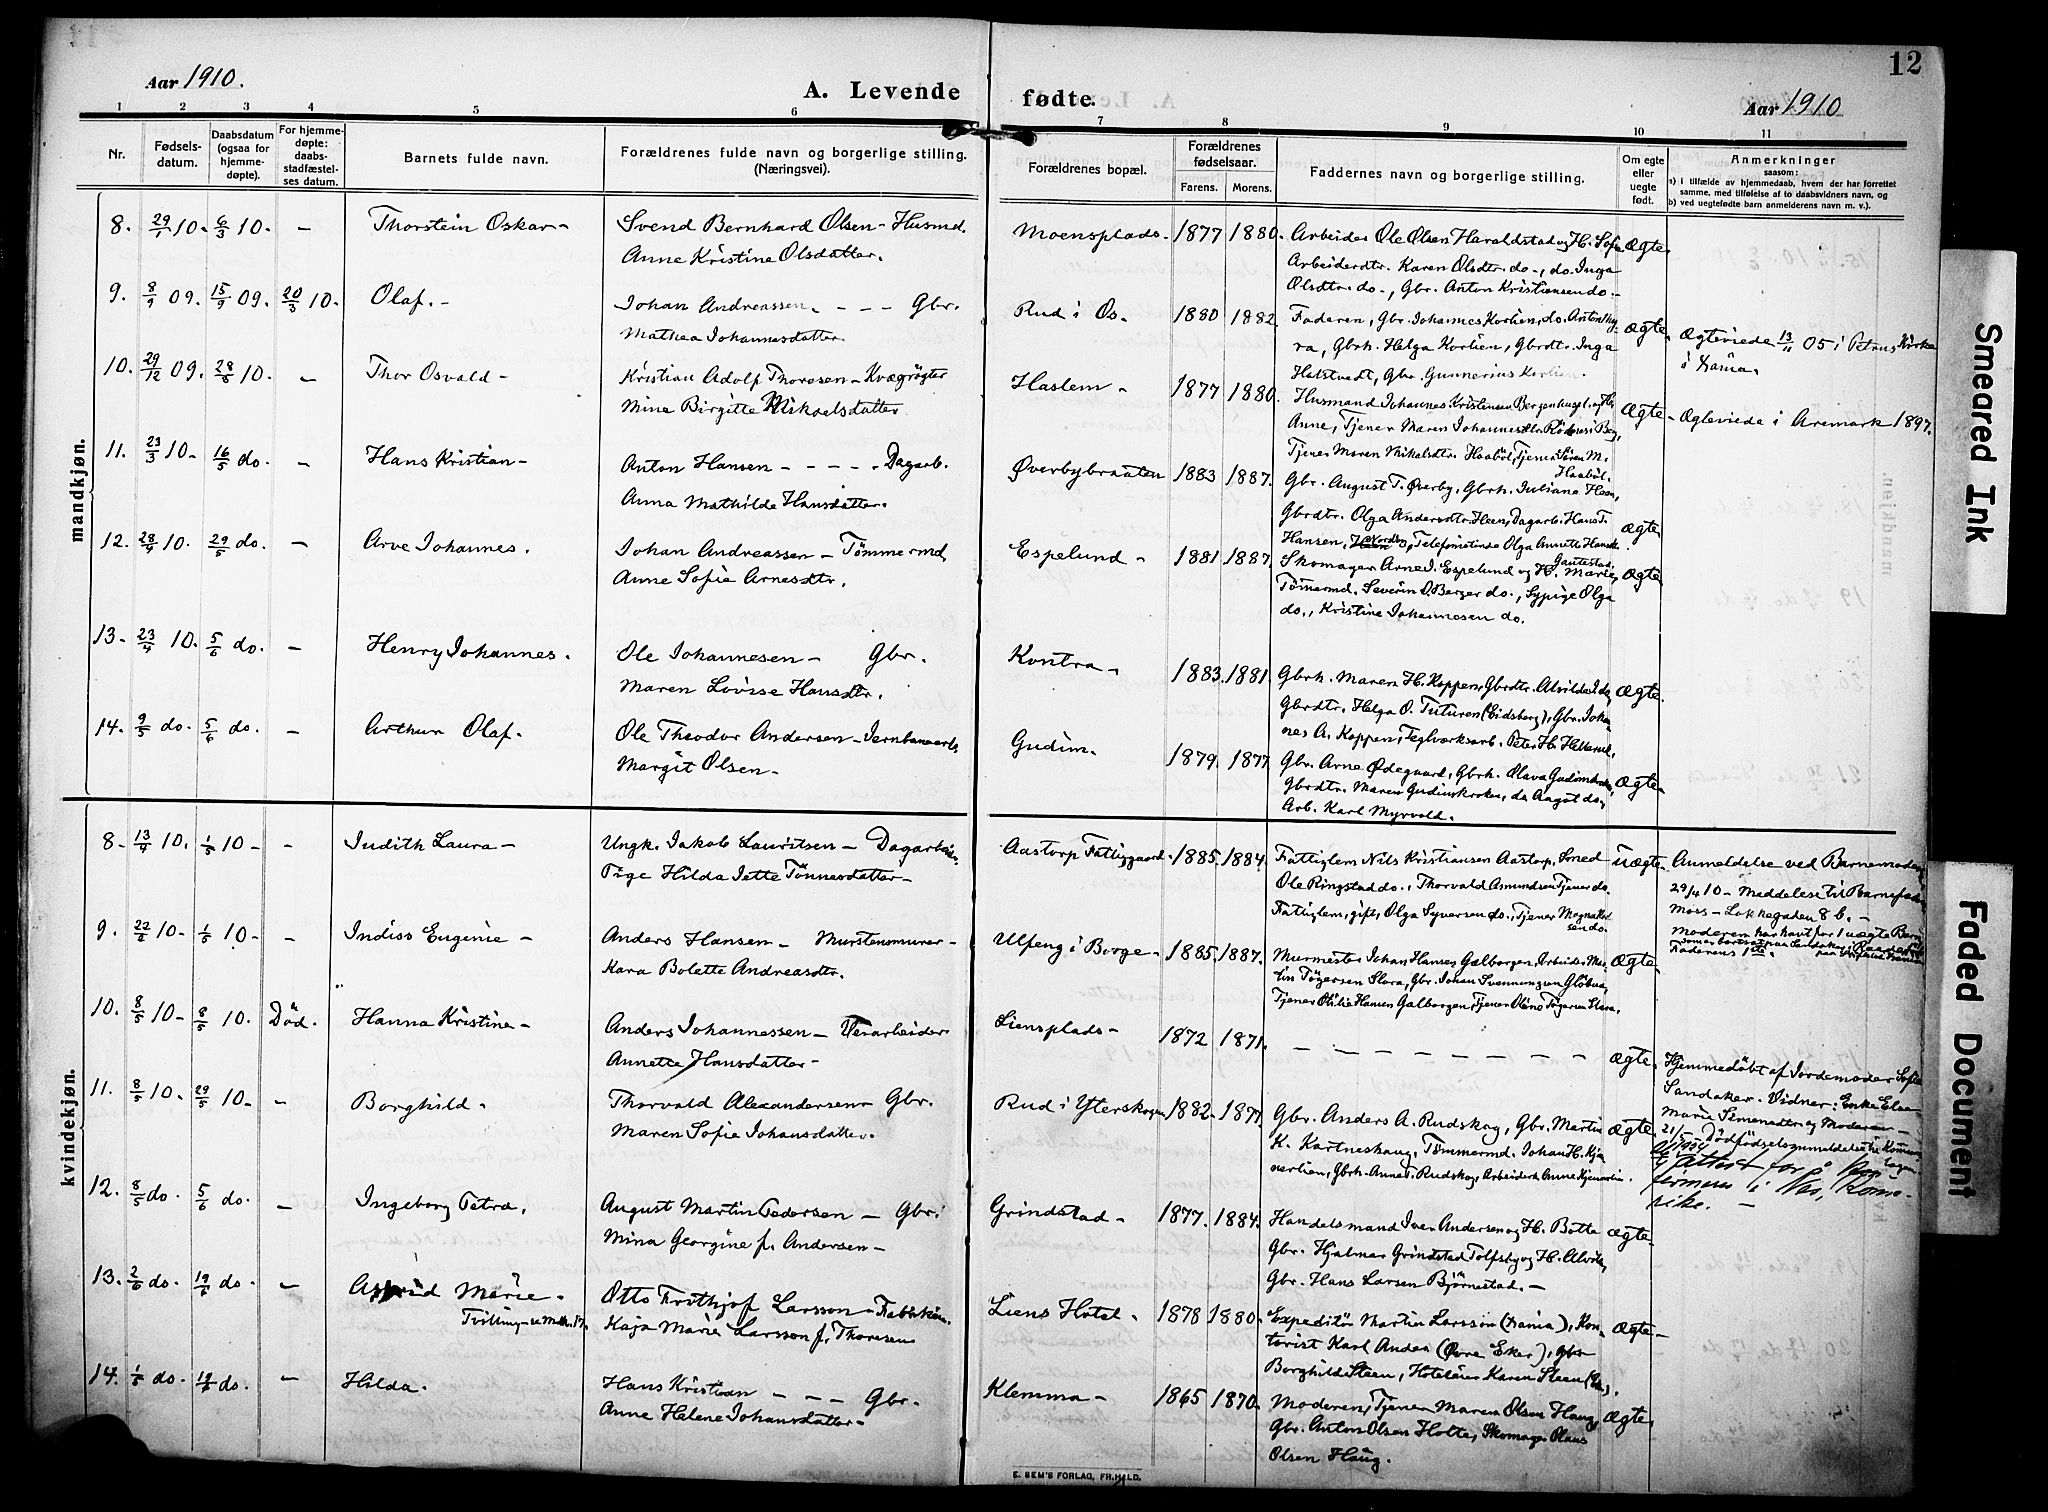 12
Aar 1910.
A. Levende
fødte.
Aar 1910
1 2 3 4 5 6 7 8 9 10 11
Nr.
Fødselsdatum.
Daabsdatum (ogsaa for hjemmedøpte).
For hjemmedøpte: daabsstadfæstelses datum.
Barnets fulde navn.
Forældrenes fulde navn og borgerlige stilling.
(Næringsvei).
Forældrenes bopæl.
Forældrenes fødselsaar.
Farens. Morens.
Faddernes navn og borgerlige stilling.
Om egte eller uegte født.
Anmerkninger
saasom:
a) i tilfælde av hjemmedaab, hvem der har forrettet samme, med tilføielse af to daabsvidners navn, og
b) ved uegtefødte barn anmelderens navn m. v.).
mandkjøn.
8. 29/1 10. 6/3 10. – Thorstein Oskar – Svend Bernhard Olsen – Husmd. Moensplads. 1877 1880. Arbeider Ole Olsen Haraldstad og H. Sofie Ægte.
Anne Kristine Olsdatter. Arbeiderdtr. Karen Olsdtr. do., do. Inga
Olsdtr. do., Gbr. Anton Kristiansen do. –
9. 8/9 09. 15/9 09. 20/3 10. Olaf. – Johan Andreassen. – – – Gbr. Rud i Os. 1880 1882. Faderen, Gbr. Johannes Korlien, do. Anton Ægte.
Mathea Johannesdatter. Gbrk. Helga Korlien, Gbrdtr. Inga Ægteviede 13/11 05 i Petrus Kirke
Halstvedt, Gbr. Gunnerius Korlien. i
10. 29/12 09. 28/3 10. – Thor Osvald – Kristian Adolf Thoresen – Kvægrøgter Haslem – 1877 1880. Husmand Johannes Kristensen Ægte –
Mina Birgitte Mikaelsdatter. Anne, Tjener Maren Johannesdtr. Ægteviede i Aremark 1897.
Tjener Maren Mikalsdtr. Haabøl, Tjener Søren M. Haabøl.
11. 23/3 10 – 16/5 do. – Hans Kristian – Anton Hansen – – – – Dagarb. Øverbybraaten 1883 1887. Gbr. August T. Øverby, Gbrk. Juliane Heen, Ægte.
Anna Mathilde Hansdatter. Gbrdtr. Olga Andersdtr. Heen, Dagarb. Hans T.
Hansen, Nordby, Telefonistinde Olga Annette Hansdtr.
12. 28/4 10. 29/5 do. – Arve Johannes. Johan Andreassen – Tømmermd. Espelund – 1881 1887. Skomager Arne J. Espelund og H. Marie, Ægte
Anne Sofie Arnesdtr. Tømermd. Severin O. Berger do., Sypige Olga
do., Kristine Johannesen do.
13. 23/4 10. 5/6 do. – Henry Johannes. Ole Johannesen – Gbr. Kontra – 1883. 1881. Gbrk. Maren H. Koppen, Gbrdtr. Alvilde Ægte.
Maren Lovise Hansdtr. Gbrdtr. Helga O. Tuturen (Eidsberg), Gbr. Johannes
A. Koppen, Teglverksarb. Peter H.
14. 9/5 do. 5/6 do. – Arthur Olaf. Ole Theodor Andersen – Jernbanearb. Gudim. 1879. 1877 Gbr. Arne Ødegaard, Gbrk. Olava Gudimkroken, Ægte.
Margit Olsen – Gbrdtr. Maren Gudimkroken, do Aagot do,
Arb. Karl Myrvold.
kvindekjøn.
8. 13/4 10. 1/5 10 – – Judith Laura – Ungk. Jakob Lauritsen – Dagarbeider. Aastorp Fattiggaard. 1885. 1884. Fattiglem Nils Kristiansen Aastorp, Smed uægte. Anmeldelse ved Barnemoderen
Pige Hilda Jette Tønnesdatter – Ole Ringstad do., Thorvald Amundsen Tjener do. 29/4 10 – Meddelese til Barnefaderen
Fattiglem, gift, Olga Syversen do., Tjener Magna Moss – Lokkegaden 8 b. –
Moderen har havt før 1 uægte Barn
Faderens 1ste.
9. 22/2 10 – 1/5 10 – – Indiss Eugenie – Anders Hansen – Murstensmurer – Ulfeng i Borge – 1885. 1887. Murmester Johan Hansen Galborgen, Arbeider Ægte.
Kara Bolette Andreasdtr. Tøgersen Slora, Gbr. Johan Svenningsen
Tjener Otilie Hansen Galborgen, Tjener Oline Tøgersen Slora.
10. 8/5 10 – 8/5 10. Død. Hanna Kristine – Anders Johannessen – Veiarbeider Liensplads – 1872 1871. – – – – – – – – Ægte.
Annette Hansdatter – Hjemmedøbt af Jordemoder Sofie
Sandaker. Vidner: Enke Elen
Marie Simensdtr og Moderen –
21/5 – Dødfødselsanmeldelse
11. 8/5 10. 29/5 10 – – Borghild. Thorvald Alexandersen – Gbr. Rud i Ytterskogen 1882. 1877. Gbr. Anders A. Rudskog, Gbr. Martin Ægte.
Maren Sofie Johansdatter. K. Kartneshaug, Tømmermd. Johan H.
Gbrk. Annette Rudskog, Arbeiderk. Anne
1934 attest for å
i Nes, Romerike. –
12. 8/5 do. 5/6 do. – Ingeborg Petra. August Martin Pedersen – Gbr. Grindstad – 1877. 1884. Handelsmand Iver Andersen og H. Botte Ægte.
Mina Georgine f. Andersen – Gbr. Hjalmar Grindstad Tolfsby og H. Alvilde,
Gbr. Hans Larsen Bjørnestad. –
13. 2/6 do. 19/6 do. – Astrid Marie – Otto Frithjof Larsson – Liens Hotel. 1878 1880. Expeditør Martin Larsson Kontorist Ægte –
Tvilling – se M.k. 17. Kaja Marie Larsson f. Thoresen Karl Andersen (Øvre Eker), Gbr
Borghild Steen, Hoteleier Karen Steen
14. 1/5 do. 19/6 do. – Hilda. Hans Kristian – – – Gbr. Klemma – 1865 1870. Moderen, Tjener Maren Olsen Haug, Ægte.
Anne Helene Johansdatter – Gbr. Anton Olsen Holte, Skomager Olaus
Olsen Haug.
E. SEM'S FORLAG, FR.HALD.
Smeared Ink
Faded Document